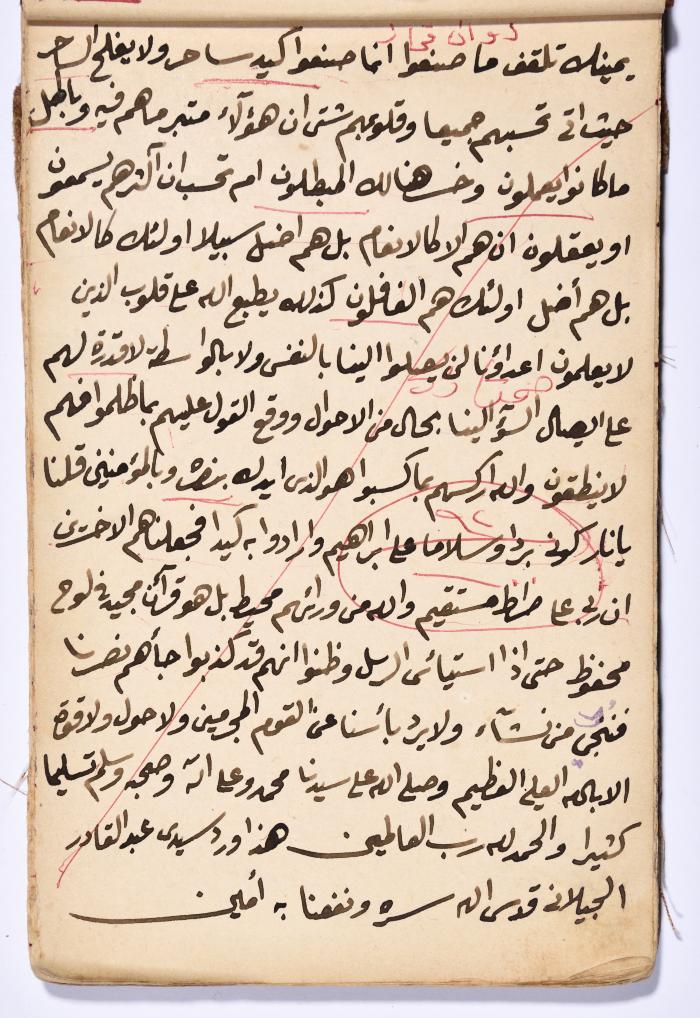 يمينك تلقف ما صنعوا انما صنعوا كيد ساحر ولا يفلح الساحر
حيث اتى تحسبهم جميعا وقلوبهم شتى ان هؤلآء متبر ما هم فيه وباطل
ما كانوا يعملون وخسر هنالك المبطلون ام تحسب ان اكثرهم يسمعون
او يعقلون ان هم الا كالانعام بل هم اضل سبيلا اولئك كالانعام
بل هم أضل اولئك هم الغافلون كذلك يطبع الله على قلوب الذين
لا يعلمون اعداؤنا لن يصلوا الينا بالنفس ولا بالواسطة لا قدرة لهم
على ايصال السؤ الينا بحال من الاحوال ووقع القول عليهم بما ظلموا فهم
لا ينطقون والله اركسهم بما كسبوا هو الذى ايدك بنصره وبالمؤمنين قلنا
يا نار كونى بردا وسلاما على ابراهيم وارادوا به كيدا فجعلناهم الاخسرين
٩٢
ان ربى على صراط مستقيم والله من ورائهم محيط بل هو قرآن مجيد فى لوح
محفوظ حتى اذا استيائس الرسل وظنوا انهم قد كذبوا جأهم نصرنا
فنجى من نشآء ولا يرد بأسنا عن القوم المجرمين ولا حول ولا قوة
الا بالله العلى العظيم وصلى الله على سيدنا محمد وعلى اله وصحبه وسلم تسليما
كثيرا والحمد لله رب العالمين هذا ورد سيدى عبد القادر
الجيلانى قدس الله سره ونفعنا به أمين